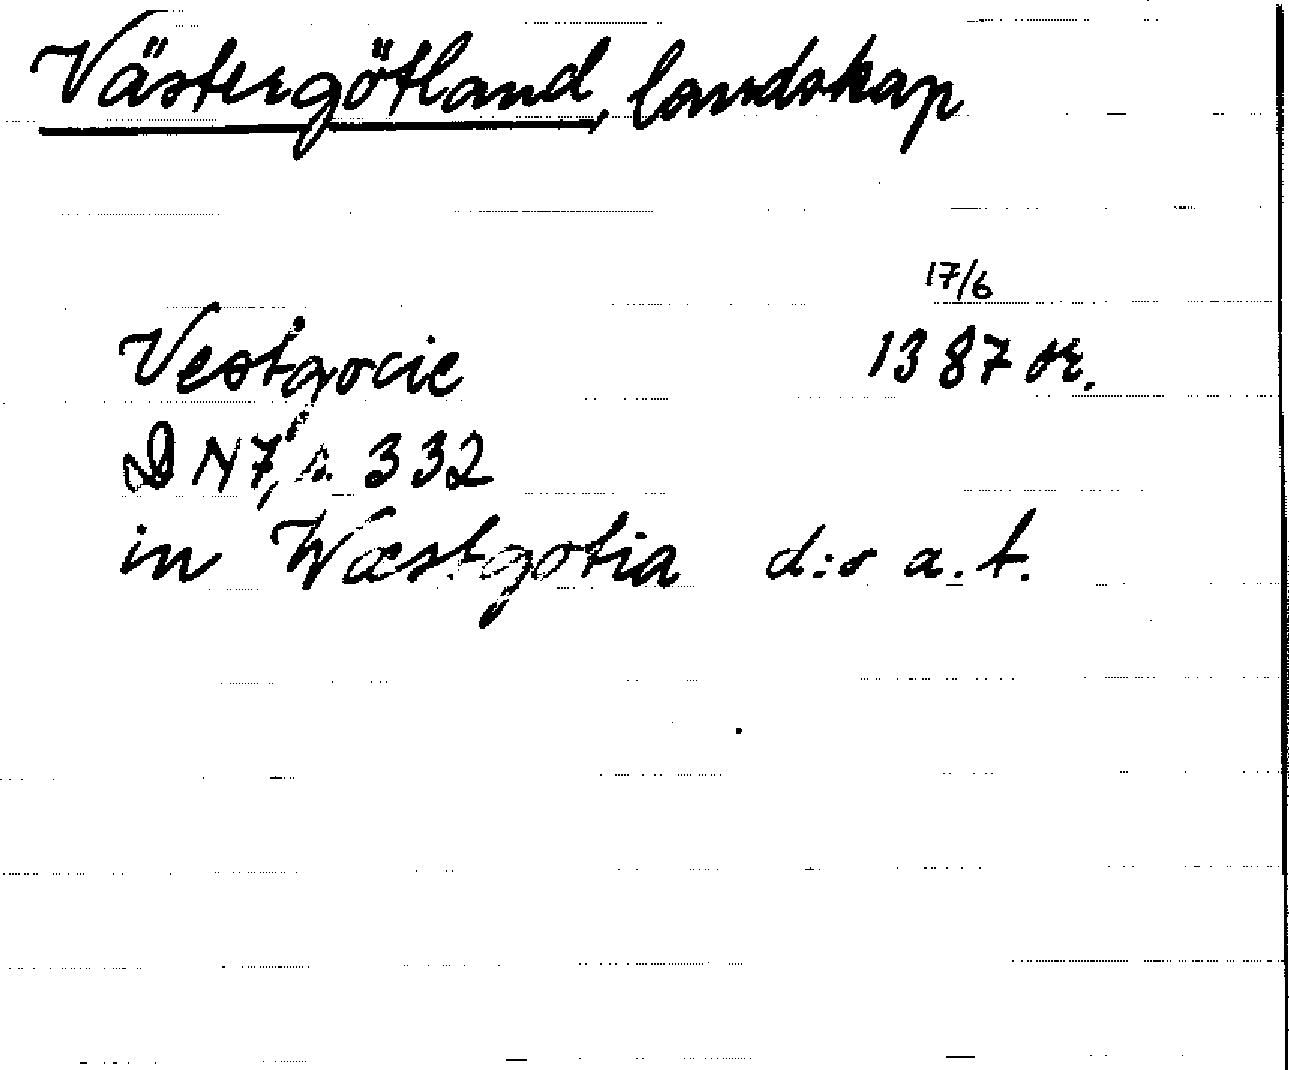 Västergötland, landskap
17/6
Vestgocie 1387 or.
DN 7, s. 332
in Wæstgotia d:o a.t.